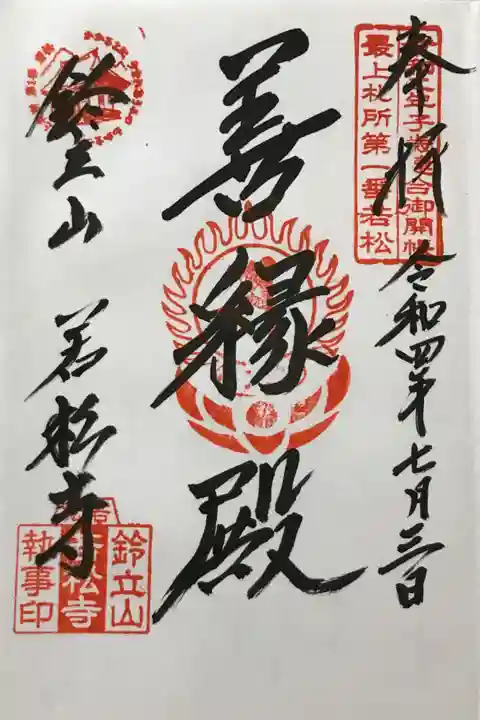 奉拝
令和四年七月三日
最上札所第一番若松
善縁殿
鈴立山
若松寺
鈴立山
若松寺
執事印